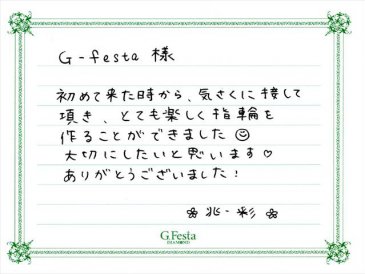 G-festa 様
初めて来た時から、気さくに接して
頂き、とても楽しく指輪を
作ることができました☺
大切にしたいと思います♡
ありがとうございました！
兆・彩
G.Festa
DIAMOND